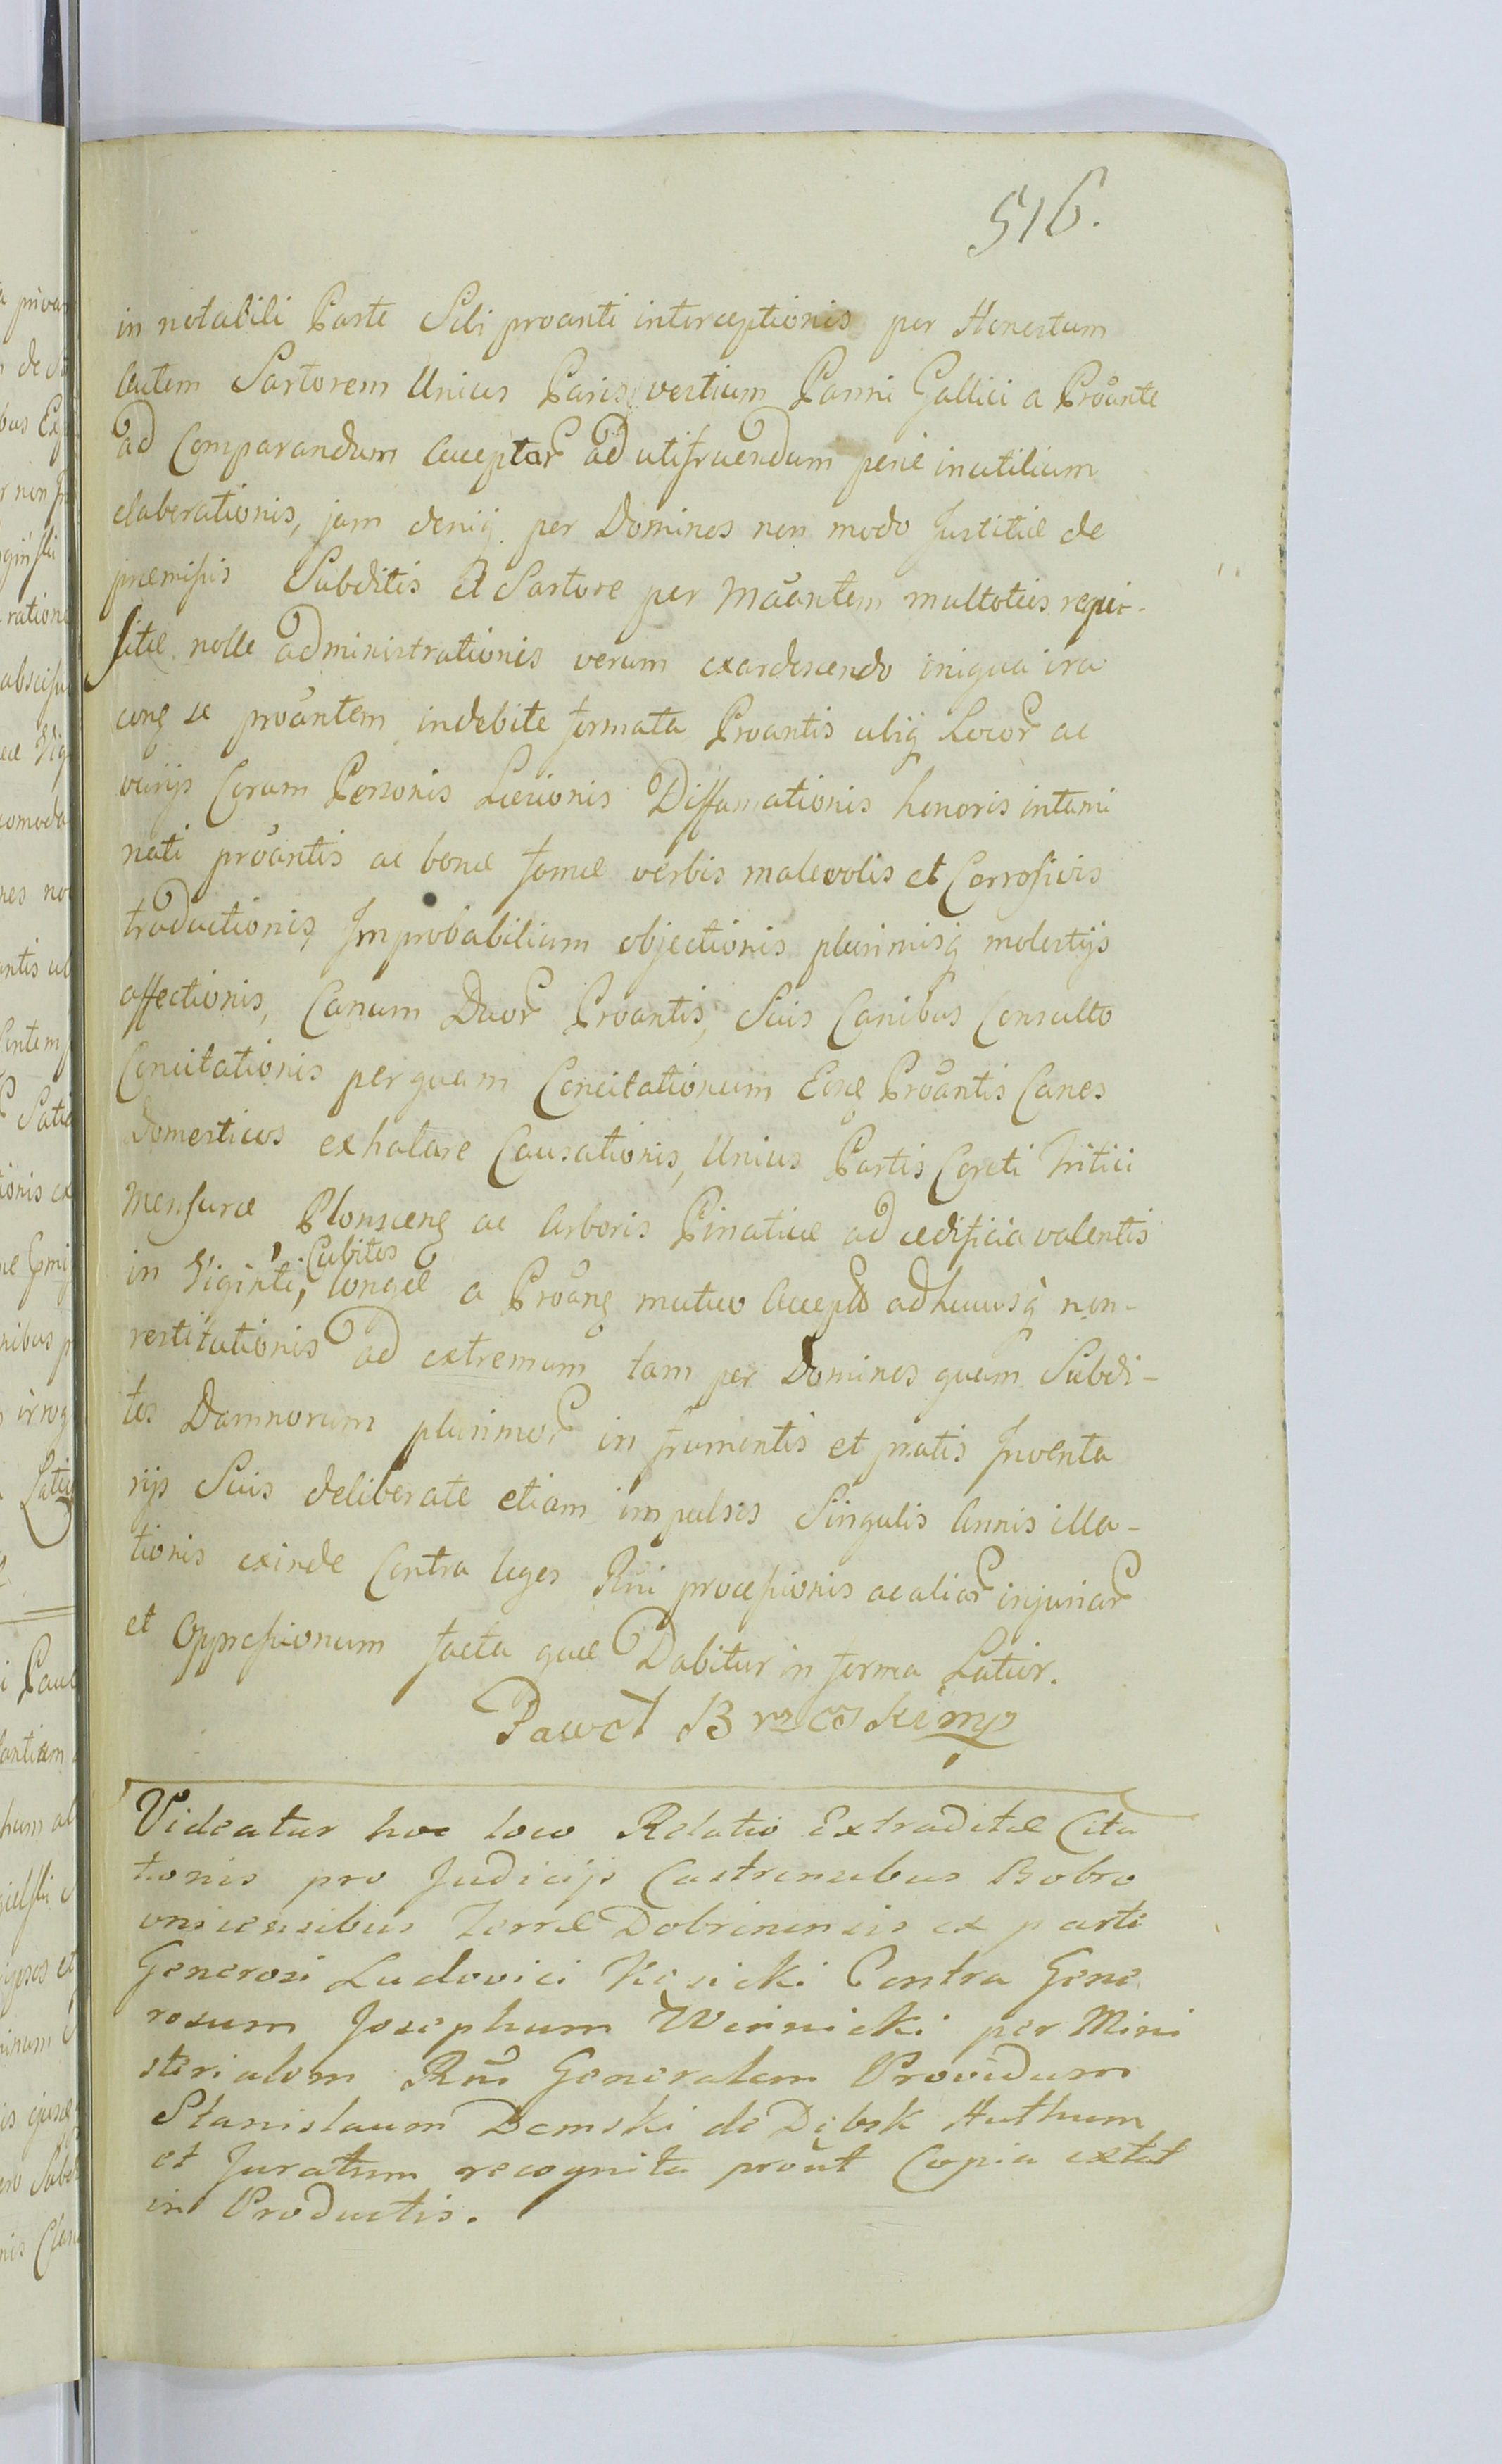 516.
in notabili Parte Sibi proanti interceptionis per Honestum
autem Sartorem Unius Paris vestium Panni Gallici a Proante
ad Comparandum acceptar ad utifruendum pene inutilium
elaborationis, jam deniq per Dominos non modo Justitiæ de
præmissis Subditis et Sartore per Mãantem multoties requi-
sitæ nolle administrationis verum exardescendo iniqua ira
cong se proãntem indebite formata Proantis ubiq Locor ac
varijs Coram Personis Læsionis Diffamationis honoris intami
nati proãntis ac bonæ famæ verbis malevolis et Corrosivis
traductionis, Improbabilium objectionis plurimisq molestijs
affectionis, Canum Duor Proantis, Suis Canibus Consulto
Concitationis per quam Concitationum Eosq Proãntis Canes
domesticos exhalare Causationis, Unius Partis Coreti Tritici
Mensuræ Plonsceng ac Arboris Pinaticæ ad ædificia valentis
in Viginti, Cubitos longæ a Proãng mutuo Accepto adhucusq non-
restitutionis ad extremum tam per Dominos quam Subdi-
tos Damnorum plurimor in frumentis et pratis Inventa
rijs Suis deliberate etiam impulsis Singulis Annis illa-
tionis exinde Contra leges Rñi processionis ac aliar injuriar
et Oppressionum facta quæ Dabitur in forma Latior.
Paweł Brzeski mp
Videatur hoc loco Relatio Extraditæ Cita
tionis pro Judicijs Castrensibus Bobro
vnicensibus Terræ Dobrinensis ex parte
Generosi Ludovici Kęsicki Contra Gene
rosum Josephum Wiśnicki per Mini
sterialem Rñi Generalem Providum
Stanislaum Demski de Dębsk Authum
et Juratum recognita proũt Copia extat
in Productis.